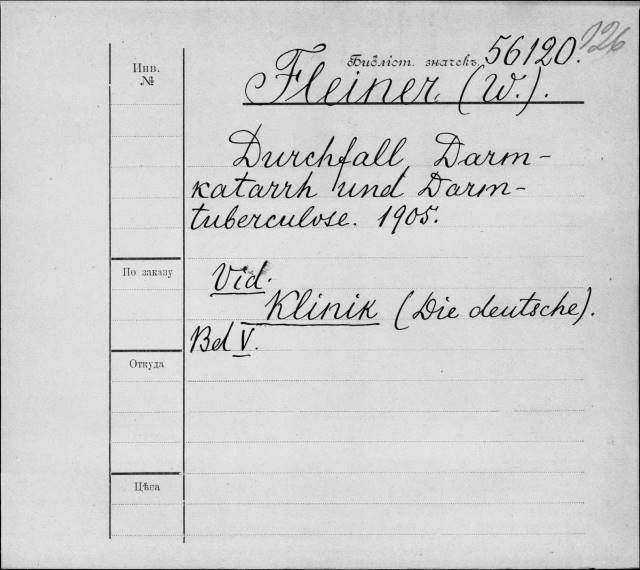 126
Библіот. значекъ 56120.
Инв.
№
Fleiner (W.).
Durchfall, Darm-
katarrh und Darm-
tuberculose. 1905.
По заказу
Vid.
Klinik (Die deutsche).
Bd V.
Откуда
Цѣна